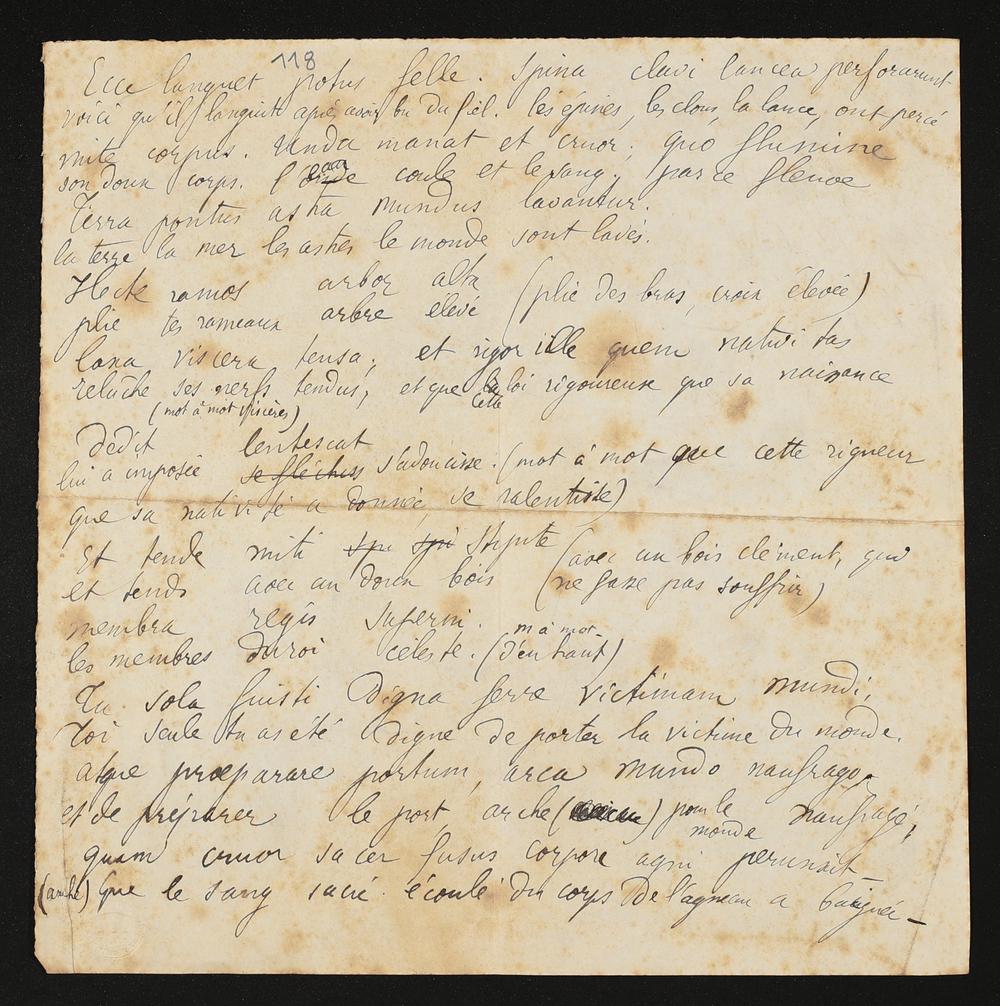 118
Ecce languet potus felle. Spina clavi lancea perforarunt
voici qu'il languit après avoir bu du fiel. les épines, les clous, la lance, ont percé
mite corpus. Unda manat et cruor; quo flumine
son doux corps. l'eau coule et le sang; par ce fleuve
Terra pontus astra mundus lavantur.
la terre la mer les astres le monde sont lavés.
Flecte ramos arbor alta (plie des bras, croix élevée)
plie tes rameaux arbre élevé
laxa viscera tensa; et rigor ille quem nativitas
relâche ses nerfs tendus; et que la loi rigoureuse que sa naissance
cette
(mot à mot viscères)
Dedit lentescat
lui a imposée se fléchisse s'adoucisse. (mot à mot que cette rigueur
que sa nativité a donnée, se ralentisse)
Et tende miti spi spi Stipite (avec un bois clément, qui
et tends avec un doux bois ne fasse pas souffrir)
membra regis superni.
les membres du roi céleste. (m à mot d'en haut)
Tu sola fuisti Digna ferre victimam mundi,
Toi seule tu as été digne de porter la victime du monde.
atque præparare portum, arca mundo naufrago,
et de préparer le port, arche ( ) pour le monde naufragé,
quam cruor sacer fusus corpore agni perunxit_
(arche) que le sang sacré écoulé du corps De l'agneau a baignée_